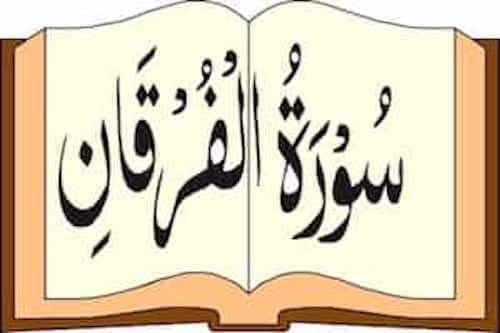 سُوْرَةُ الْفُرْقَانِ